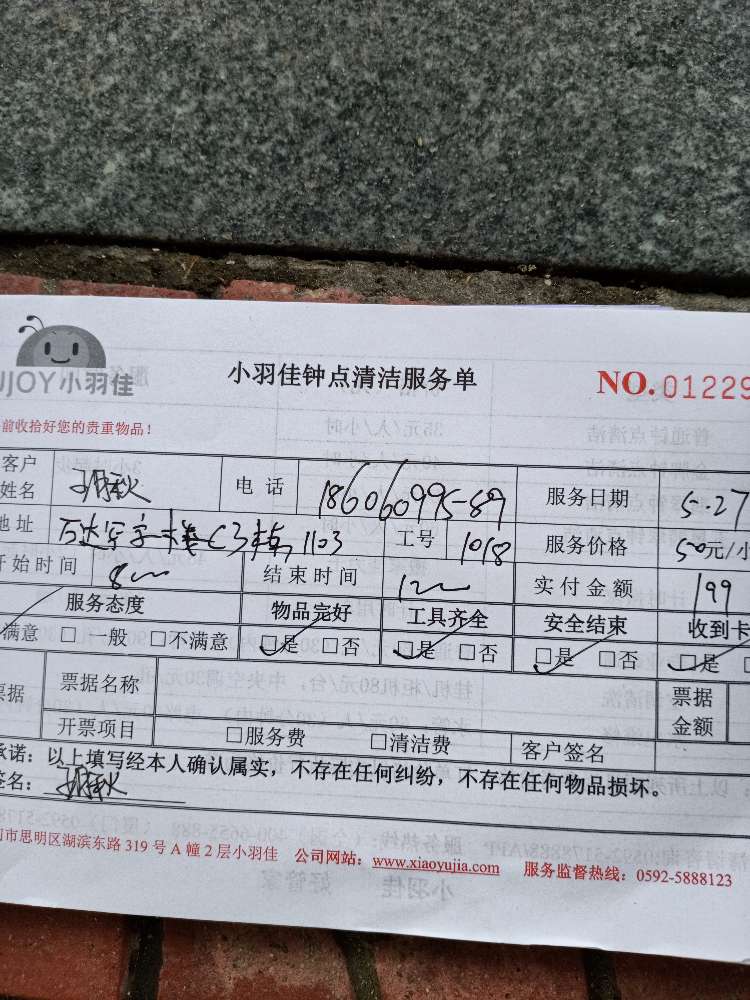 UJOY小羽佳
小羽佳钟点清洁服务单
NO.01229
前收拾好您的贵重物品！
客户姓名 电话 18606099589 服务日期 5.27
地址 万达写字楼C3栋1103 工号 1018 服务价格 50元/小
开始时间 8 结束时间 12 实付金额 199
服务态度 物品完好 工具齐全 安全结束 收到卡
满意 □一般 □不满意 □是 □否 □是 □否 □是 □否 □是
票据 票据名称 票据金额
开票项目 □服务费 □清洁费 客户签名
承诺：以上填写经本人确认属实，不存在任何纠纷，不存在任何物品损坏。
签名：
门市思明区湖滨东路319号A幢2层小羽佳 公司网站：www.xiaoyujia.com 服务监督热线：0592-5888123